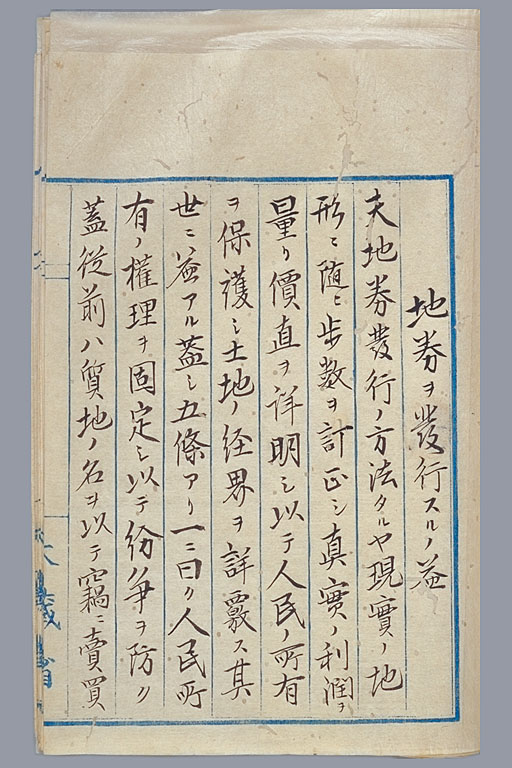 地券ヲ發行スルノ益
夫地券發行ノ方法タルヤ現實ノ地
形ニ随ヒ歩数ヲ訂正シ真実ノ利潤ヲ
量リ價直ヲ詳明シ以テ人民ノ所有
ヲ保護シ土地ノ経界ヲ詳覈ス其
世ニ益アル蓋シ五條アリ一ニ曰ク人民所
有ノ權理ヲ固定シ以テ紛争ヲ防ク
蓋従前ハ質地ノ名ヲ以テ竊ニ賣買